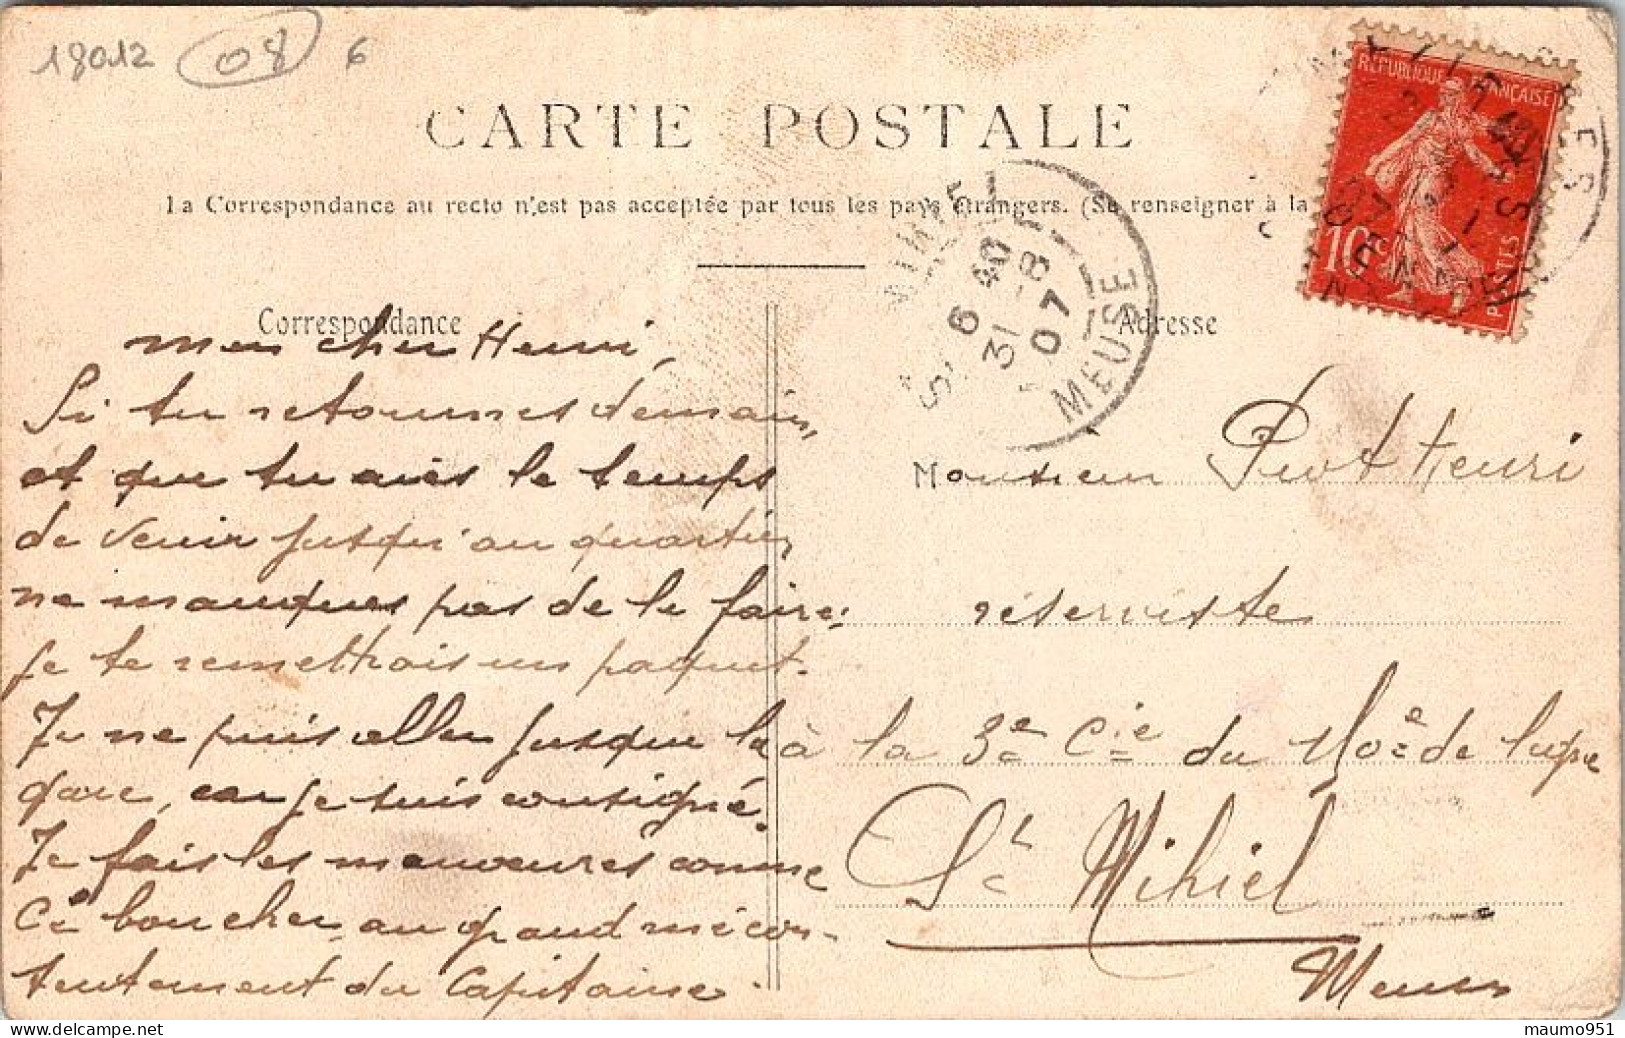 18012 08 6
CARTE POSTALE
La Correspondance au recto n'est pas acceptée par tous les pays étrangers. (Se renseigner à la
RÉPUBLIQUE FRANÇAISE
10c
POSTES
6 40
31 - 8
07
MEUSE
ARDENNES
Correspondance
mon cher Henri,
Si tu retournes demain,
et que tu aies le temps
de venir jusqu'au quartier,
ne manques pas de le faire;
je te remettrais un paquet.
Je ne puis aller jusque la
gare, car je suis consigné.
Je fais les manœuvres comme
Cé boucher, au grand mécon-
tentement du Capitaine.
Adresse
Monsieur Henri
réserviste
à la 3e Cie du de ligne
St Mihiel
Meuse
maumo951